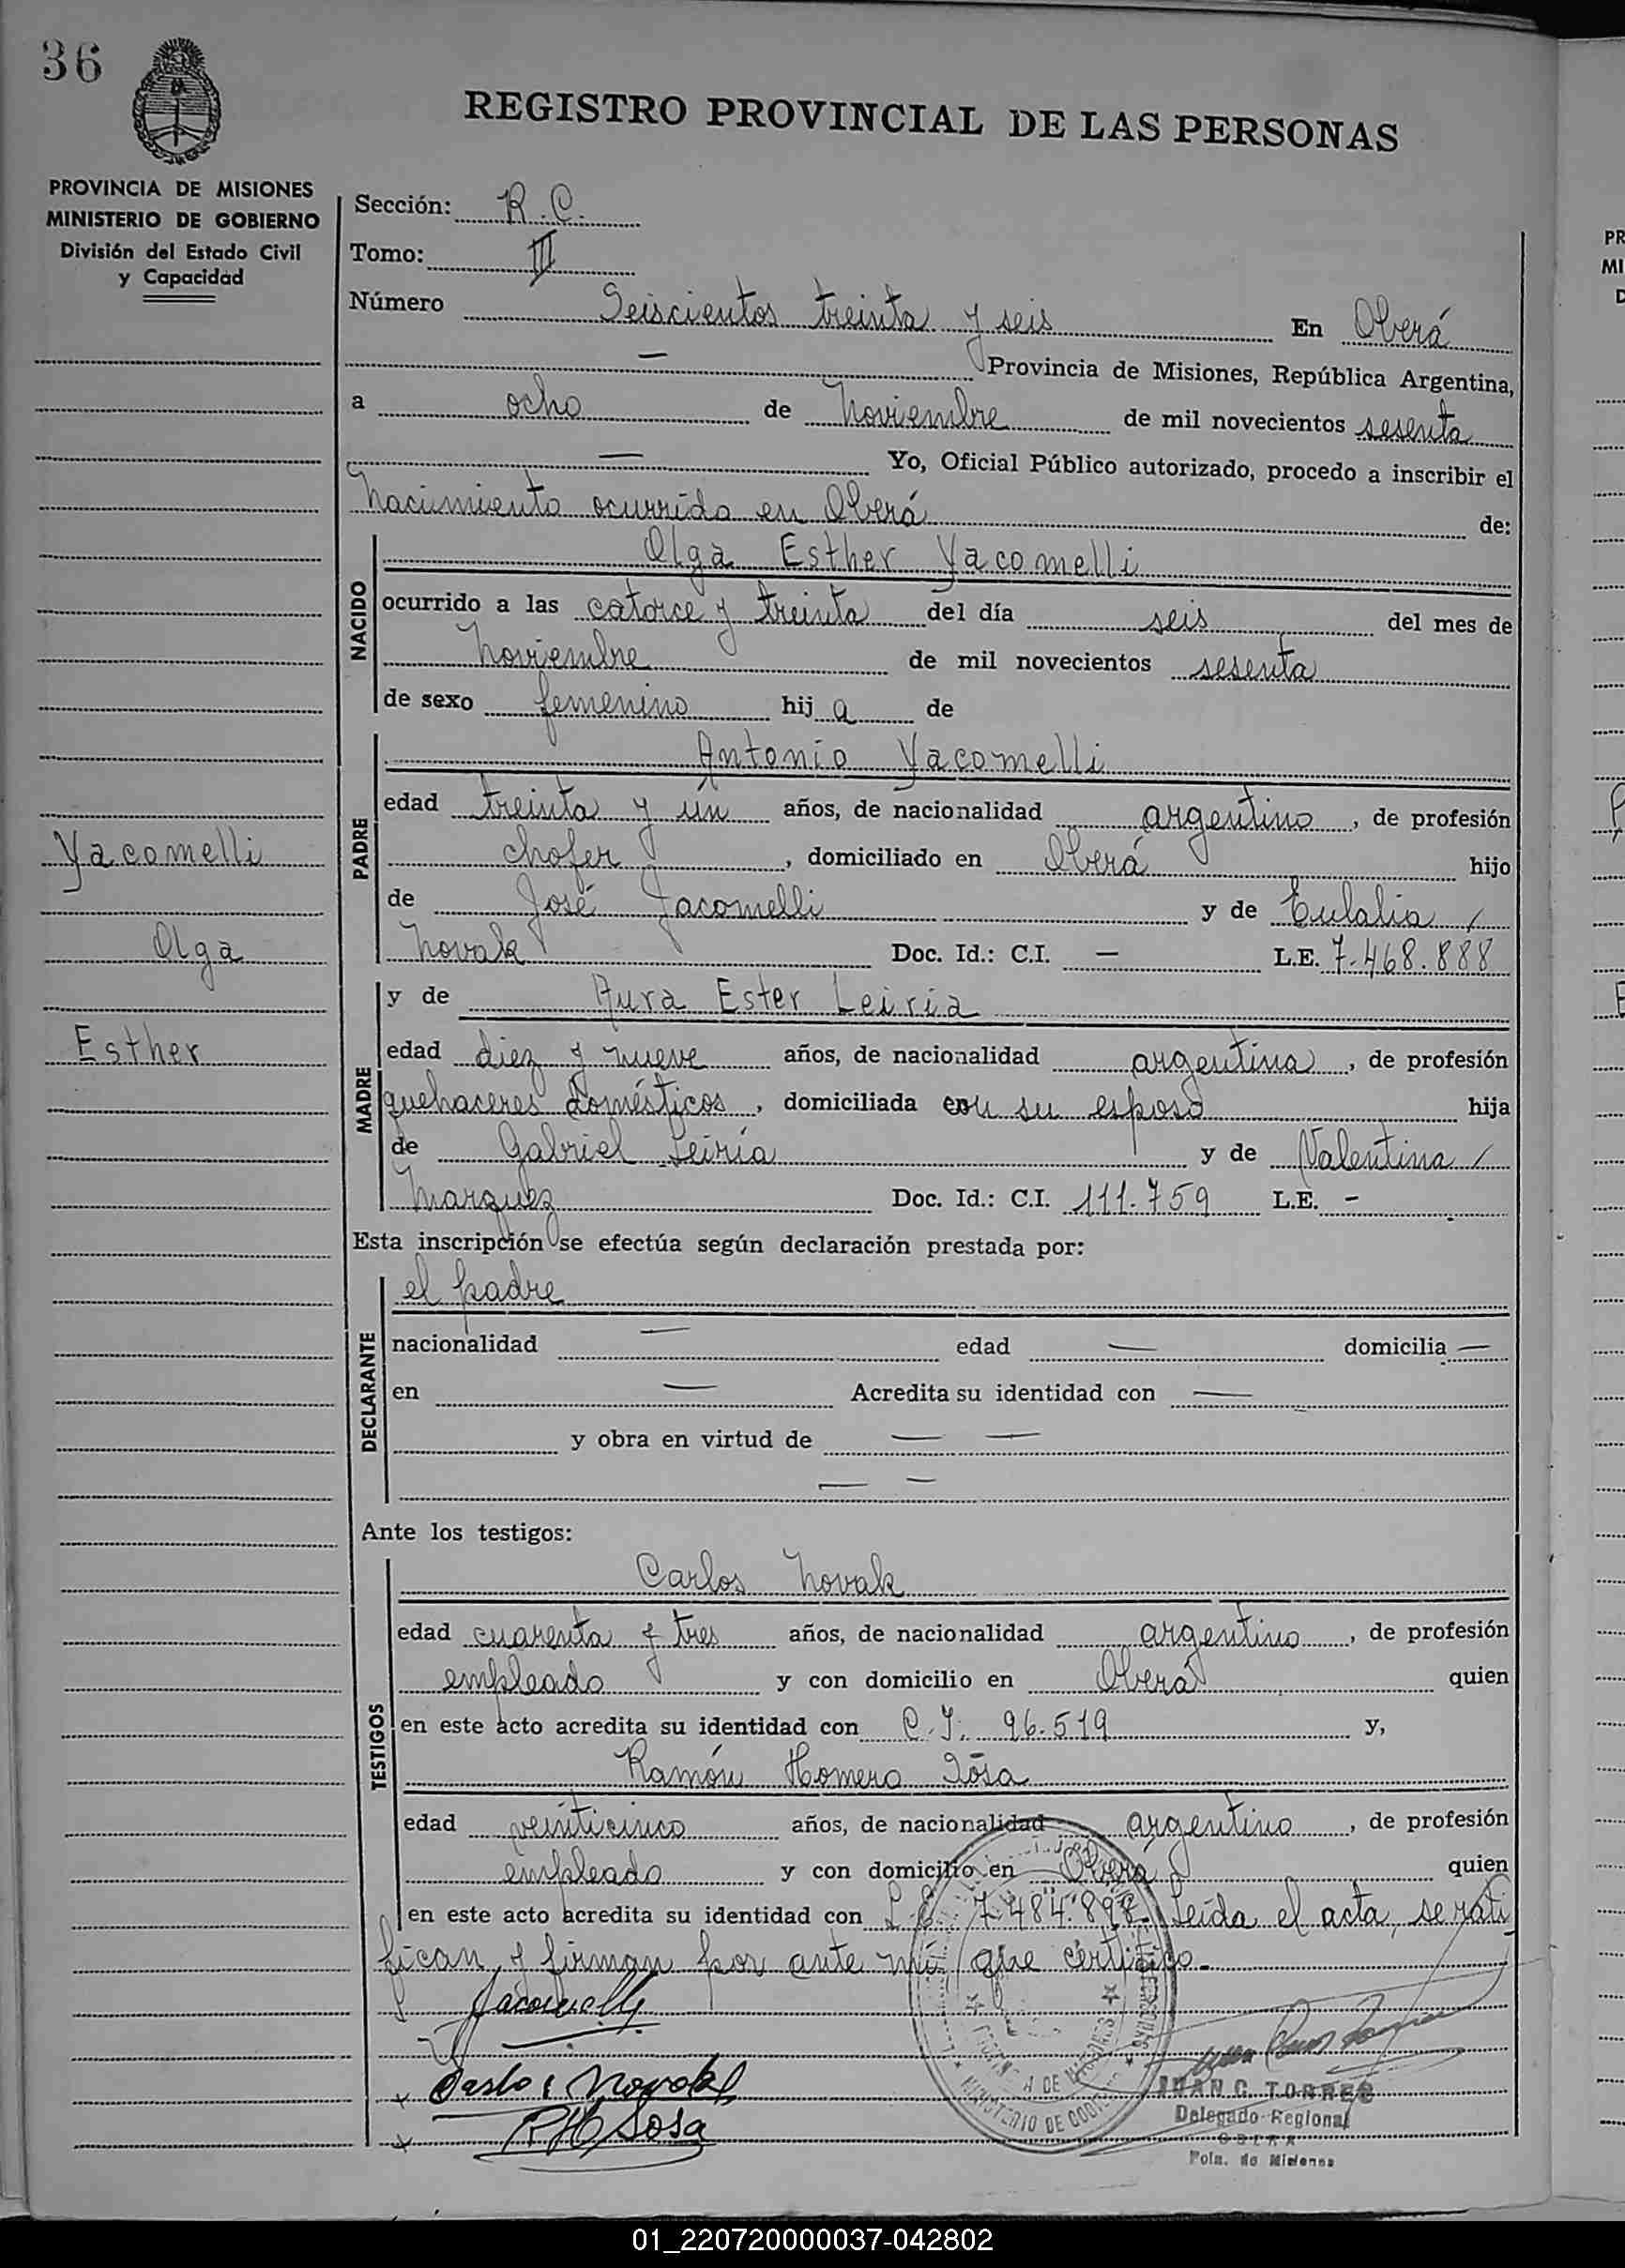 36
REGISTRO PROVINCIAL DE LAS PERSONAS
PROVINCIA DE MISIONES
MINISTERIO DE GOBIERNO
División del Estado Civil
y Capacidad
Sección: R. C.
Tomo: III
Número Seiscientos treinta y seis En Oberá
— Provincia de Misiones, República Argentina,
a ocho de Noviembre de mil novecientos sesenta
— Yo, Oficial Público autorizado, procedo a inscribir el
Nacimiento ocurrido en Oberá de:
NACIDO
Olga Esther Yacomelli
ocurrido a las catorce y treinta del día seis del mes de
Noviembre de mil novecientos sesenta
de sexo femenino hij a de
PADRE
Antonio Yacomelli
edad treinta y un años, de nacionalidad argentino, de profesión
Yacomelli
chofer, domiciliado en Oberá hijo
de José Jacomelli y de Eulalia /
Olga
Novak Doc. Id.: C.I. — L.E. 7.468.888
MADRE
y de Aura Ester Leiria
Esther
edad diez y nueve años, de nacionalidad argentina, de profesión
quehaceres domésticos, domiciliada con su esposo hija
de Gabriel Leiria y de Valentina /
Marquez Doc. Id.: C.I. 111.759 L.E. -
Esta inscripción se efectúa según declaración prestada por:
DECLARANTE
el padre
nacionalidad — edad — domicilia —
en — Acredita su identidad con —
y obra en virtud de — —
— —
Ante los testigos:
TESTIGOS
Carlos Novak
edad cuarenta y tres años, de nacionalidad argentino, de profesión
empleado y con domicilio en Oberá quien
en este acto acredita su identidad con C. I. 96.519 y,
Ramón Homero Sosa
edad veinticinco años, de nacionalidad argentino, de profesión
empleado y con domicilio en Oberá quien
en este acto acredita su identidad con L. E. 7.484.898. Leída el acta, se rati
fican y firman por ante mí que certifico.-
Jacomelly
Carlos Novak
RH Sosa
MINISTERIO DE GOBIERNO
JUAN C. TORRES
Delegado Regional
OBERA
Pcia. de Misiones
PR
MI
D
01_220720000037-042802